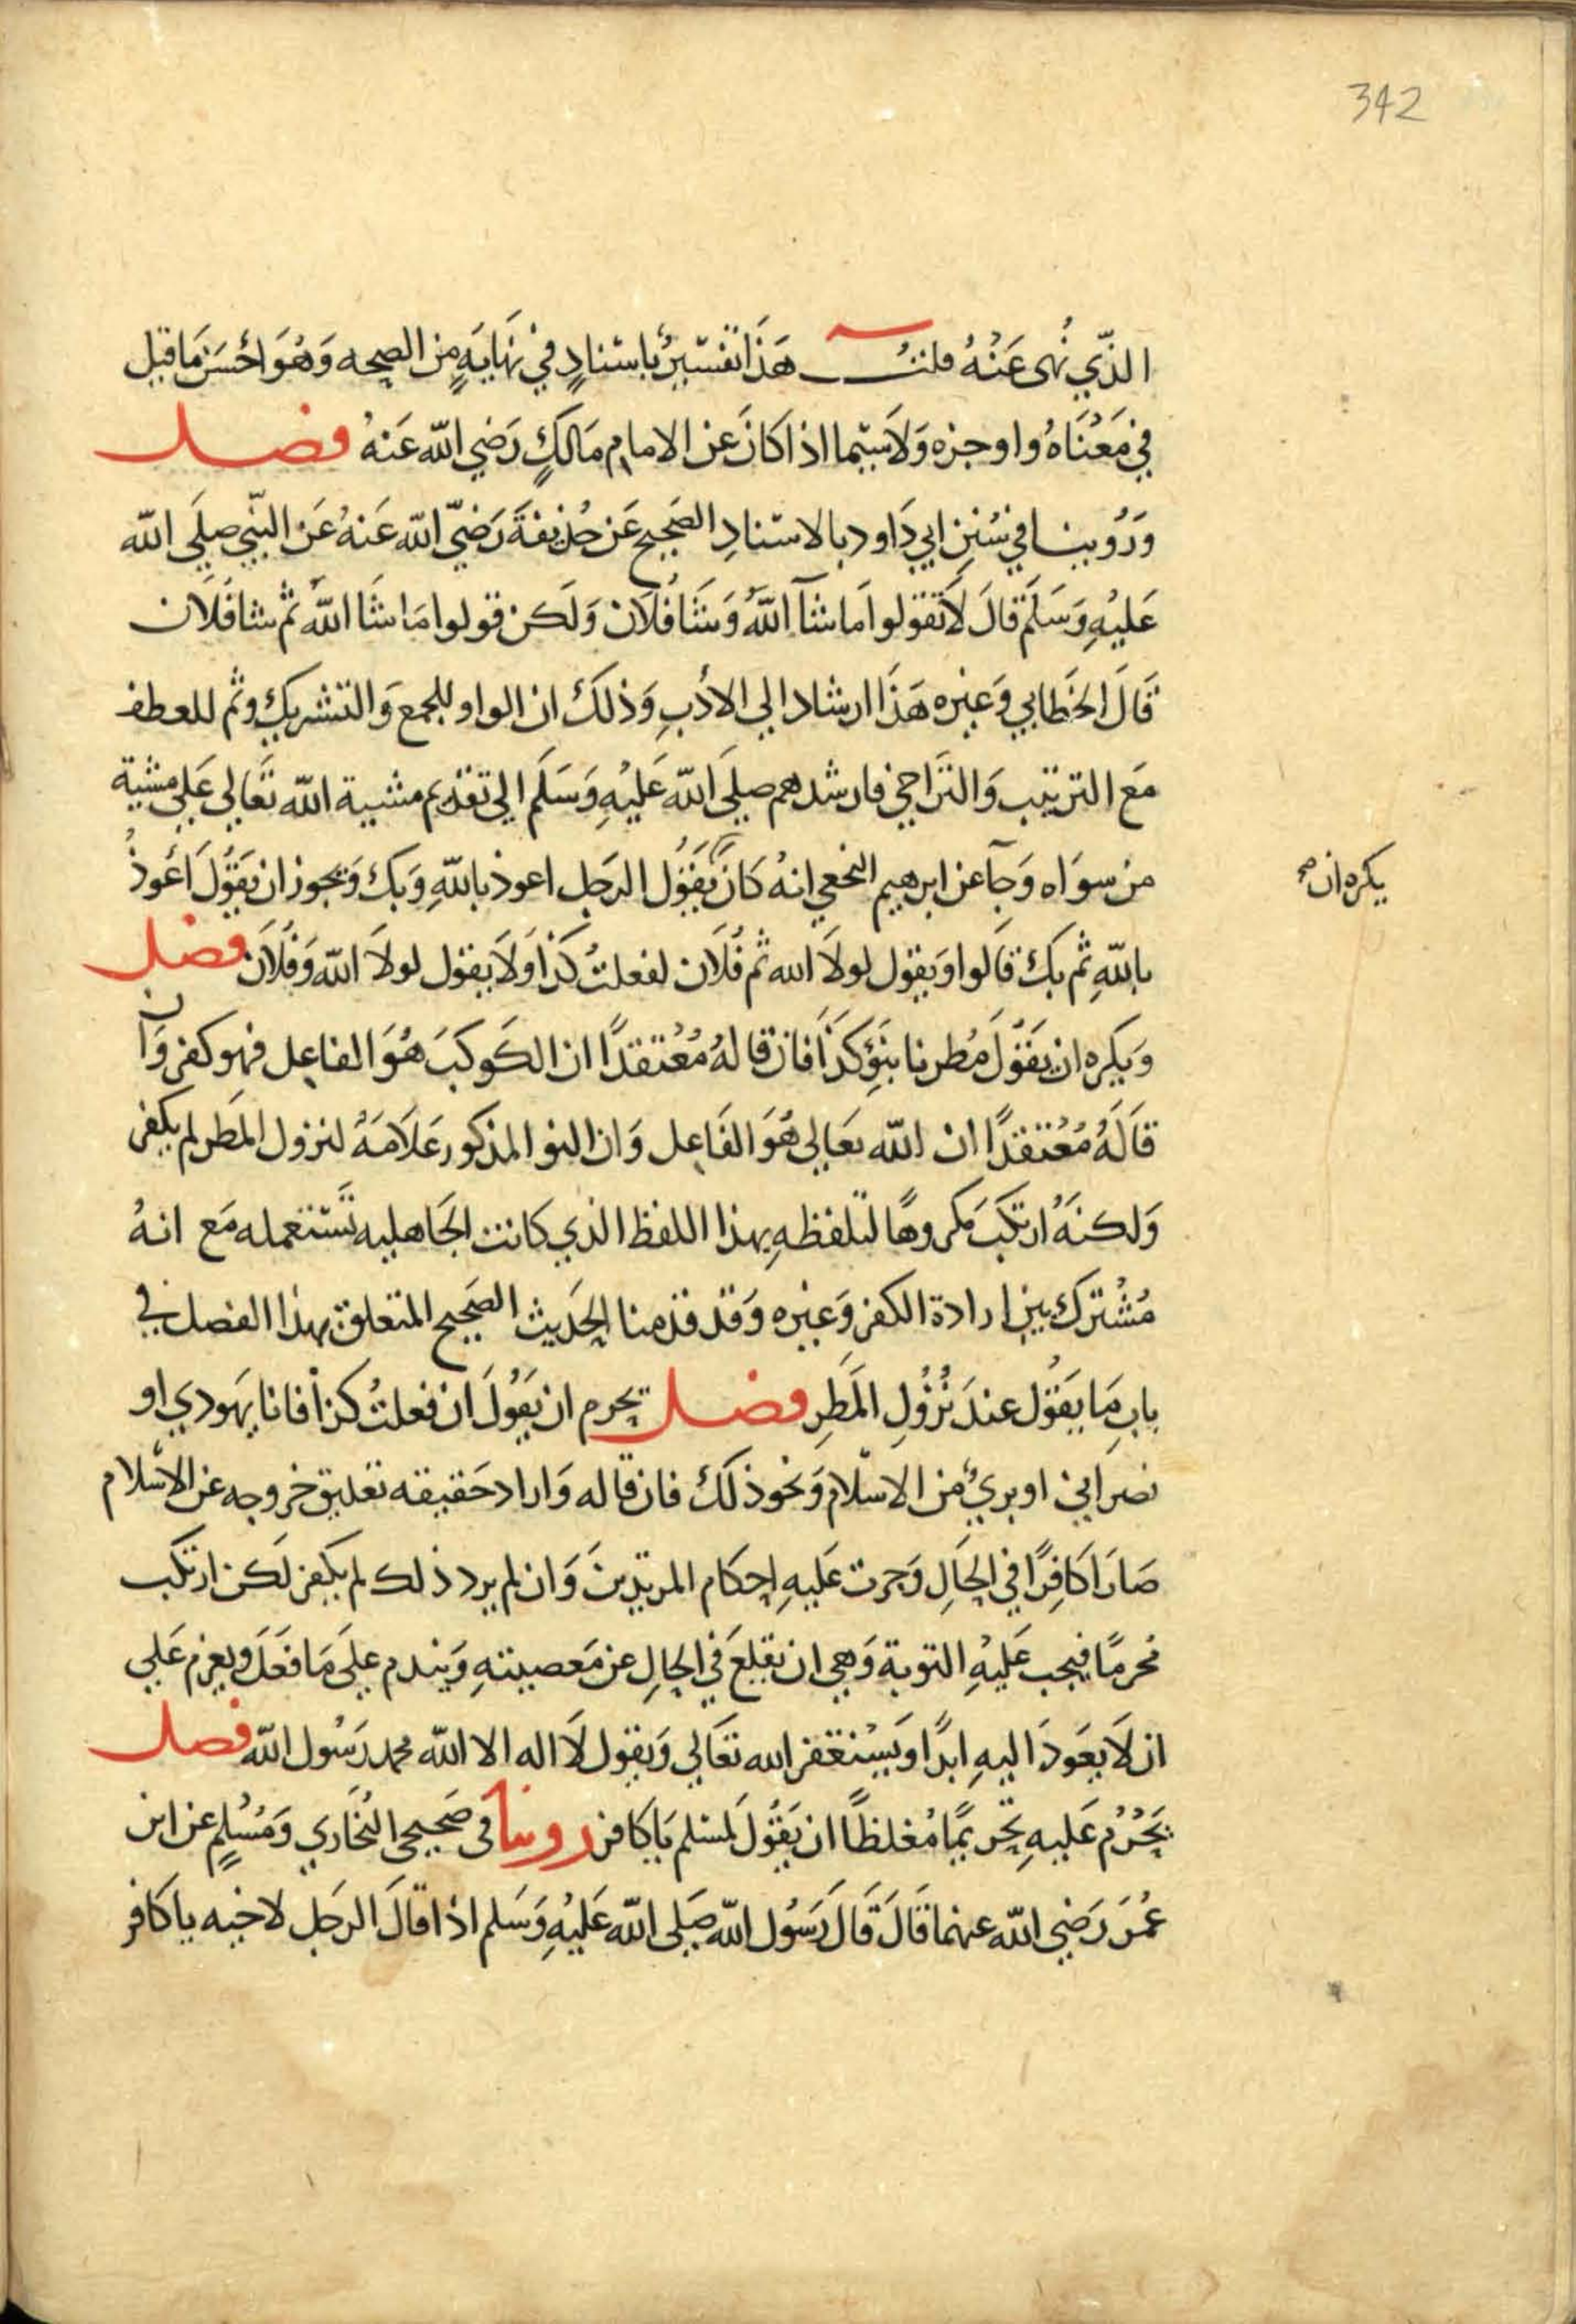 342
الذّي نُهى عَنْهُ قلتُ هَذَا تفسّيرٌ باسنادٍ في نهَايَةٍ من الصحه وَهُوَ احْسَن مَا قيل
في مَعْنَاهُ واوجزه وَلاَ سيّما اذا كانَ عن الامام مَالكٍ رَضي الله عَنهُ فصل
وَرُويناَ في سُنن ابي دَاود بالاسنادِ الصَحيح عَن حُذيفةَ رَضيّ الله عَنهُ عَن النبّي صلَي الله
عَليْهِ وَسَلّم قالَ لاَ تَقولوا مَا شآ اللَّهُ وَشَا فُلاَن وَلَكن قولوا مَا شَا اللَّهُ ثم شا فُلاَن
قَالَ الخَطابي وَغيره هَذَا ارشاد الي الأدَبِ وَذلكَ ان الواو للجمع وَالتشريكِ وثم للعطف
مَع الترتيب وَالتَراخي فارشدهم صلي الله عَليْهِ وَسَلم الي تقديم مشيية الله تعَالي عَلي مشية
من سوَاه وَجآ عن ابرهيم النخعي انهُ كانَ يَقوُل الرجل اعوذ باللهِ وَبكَ وَيجوز ان يَقوُلَ اَعُوذُ
يكره ان صح
باللهِ ثم بكَ قَالوا وَيقول لولاَ الله ثم فُلاَن لفعلتُ كذاَ وَلاَ يقول لولاَ الله وَفُلاَن فصل
وَيكره ان يَقوُلَ مُطرنا بنَوِّ كذَا فان قالهُ مُعْتقدًا ان الكَوكبَ هُوَ الفاعِل فهو كفر وَان
قَالَهُ مُعْتقدًا ان الله تعَالي هُوَ الفَاعِل وَان النو المذكور عَلاَمَةُ لنزول المَطر لم يكفر
وَلكنهُ ارتكَبَ مَكروهًا لتلفظهِ بهذا اللفظ الذي كانت الجَاهليه تَستعمله مَع انهُ
مُشْترَك بين ارادة الكفر وَغيره وَقد قدمنا الحَديث الصَحيح المتعلق بهذا الفصل في
بابِ مَا يَقوُل عندَ نُزُولِ المَطَرِ فصل يحرم ان يَقوُلَ ان فعلتُ كذاَ فانا يَهودي او
نصرَاني او بريٌ من الاسْلام وَنحو ذلكَ فان قاله وَاراد حَقيقه تعليق خروجه عن الاسْلام
صَارَ كافِرًا في الحَالِ وَجرت عَليهِ احكام المرتدينَ وَان لم يرد ذلك لم يكفر لَكن ارتكب
مُحرمًا فيجب عَليْهِ التوبة وَهي ان يقلعَ في الحالِ عن مَعصيتهِ وَيندم علي مَا فعَلَ وَيعزم عَلي
ان لاَ يعَودَ اليهِ ابدًا وَيَسْتغفر الله تعَالي وَيقول لاَ اله الا الله محمد رَسُول الله فصل
يَحْرُم عَليهِ تحريمًا مُغلظًا ان يَقوُلَ لمسلم يَا كافر روينا في صَحيحي البُخَاري وَمُسْلمٍ عن ابن
عُمَرَ رَضي الله عنهما قَالَ قَالَ رَسُول الله صَلى الله عَليْهِ وَسَلم اذا قالَ الرجل لاخيه يا كافر